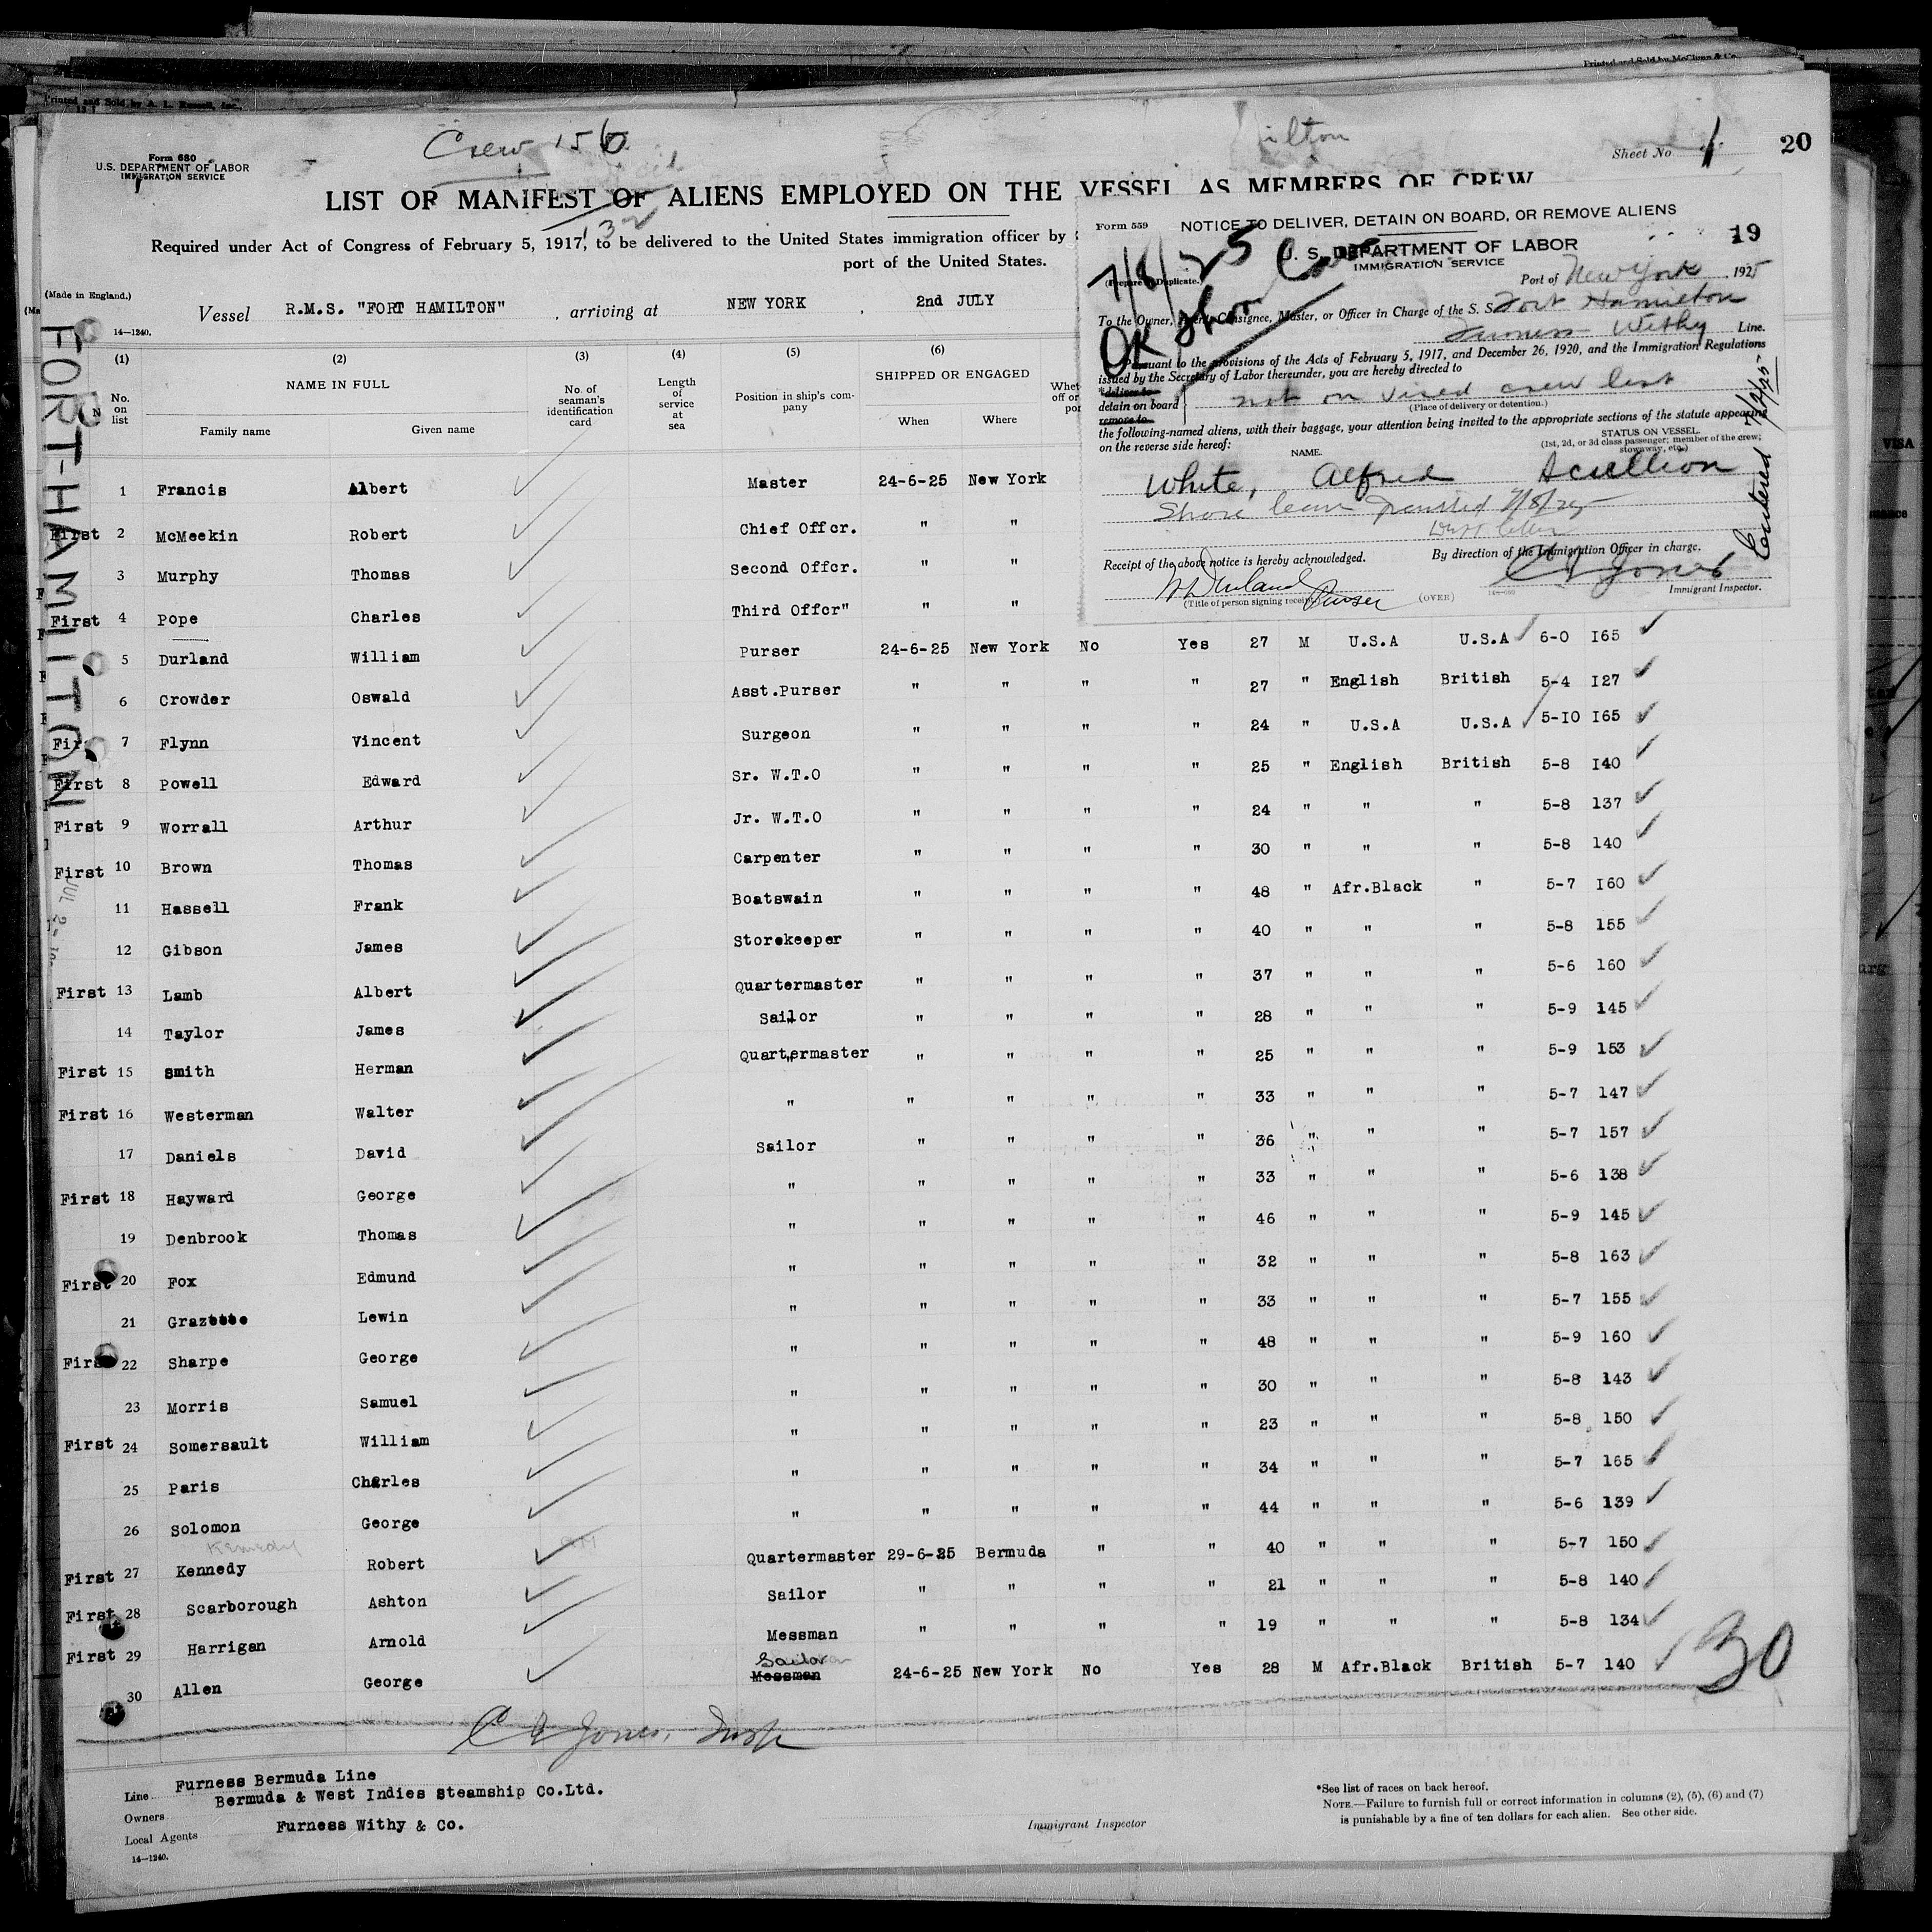 Printed and Sold by A. L. Russell, Inc.
Printed and Sold by McClunn & Co.
Form 680
U.S. DEPARTMENT OF LABOR
IMMIGRATION SERVICE
Crew 156
Sheet No. 1
20
LIST OR MANIFEST OF ALIENS EMPLOYED ON THE VESSEL AS MEMBERS OF CREW
132
Required under Act of Congress of February 5, 1917, to be delivered to the United States immigration officer by
port of the United States.
(Made in England.)
14—1240.
Vessel R.M.S. "FORT HAMILTON", arriving at NEW YORK, 2nd JULY
FORT-HAMILTON
Form 559
NOTICE TO DELIVER, DETAIN ON BOARD, OR REMOVE ALIENS
19
U. S. DEPARTMENT OF LABOR
IMMIGRATION SERVICE
7/8/25
(Prepare in Duplicate.)
Port of New York, 1925
To the Owner, Agent, Consignee, Master, or Officer in Charge of the S. S. Fort Hamilton
Furness Withy Line.
OK
Pursuant to the provisions of the Acts of February 5, 1917, and December 26, 1920, and the Immigration Regulations
issued by the Secretary of Labor thereunder, you are hereby directed to
*deliver to
detain on board
remove to
not on visED crew list
(Place of delivery or detention.)
the following-named aliens, with their baggage, your attention being invited to the appropriate sections of the statute appearing
on the reverse side hereof:
NAME.
STATUS ON VESSEL.
(1st, 2d, or 3d class passenger; member of the crew;
stowaway, etc.)
White, Alfred Scullion
Shore leave granted 7/8/25
Receipt of the above notice is hereby acknowledged.
By direction of the Immigration Officer in charge.
W Durland Purser
(Title of person signing receipt.)
(OVER)
C E Jones
Immigrant Inspector.
(1) (2) (3) (4) (5) (6)
No. on list
NAME IN FULL
Family name
Given name
No. of seaman's identification card
Length of service at sea
Position in ship's company
SHIPPED OR ENGAGED
When
Where
1 Francis Albert Master 24-6-25 New York
First 2 McMeekin Robert Chief Offcr. " "
3 Murphy Thomas Second Offcr. " "
First 4 Pope Charles Third Offcr" " "
5 Durland William Purser 24-6-25 New York No Yes 27 M U.S.A U.S.A 6-0 I65
6 Crowder Oswald Asst.Purser " " " " 27 " English British 5-4 I27
First 7 Flynn Vincent Surgeon " " " " 24 " U.S.A U.S.A 5-IO I65
First 8 Powell Edward Sr. W.T.O " " " " 25 " English British 5-8 I40
First 9 Worrall Arthur Jr. W.T.O " " " " 24 " " " 5-8 137
First 10 Brown Thomas Carpenter " " " " 30 " " " 5-8 140
11 Hassell Frank Boatswain " " " " 48 " Afr.Black " 5-7 I60
12 Gibson James Storekeeper " " " " 40 " " " 5-8 155
First 13 Lamb Albert Quartermaster " " " " 37 " " " 5-6 160
14 Taylor James Sailor " " " " 28 " " " 5-9 145
First 15 smith Herman Quartermaster " " " " 25 " " " 5-9 153
First 16 Westerman Walter " " " " " 33 " " " 5-7 147
17 Daniels David Sailor " " " " 36 " " " 5-7 157
First 18 Hayward George " " " " " 33 " " " 5-6 138
19 Denbrook Thomas " " " " " 46 " " " 5-9 145
First 20 Fox Edmund " " " " " 32 " " " 5-8 163
21 Grazette Lewin " " " " " 33 " " " 5-7 155
First 22 Sharpe George " " " " " 48 " " " 5-9 160
23 Morris Samuel " " " " " 30 " " " 5-8 143
First 24 Somersault William " " " " " 23 " " " 5-8 150
25 Paris Charles " " " " " 34 " " " 5-7 165
26 Solomon George " " " " " 44 " " " 5-6 139
Kemedy
First 27 Kennedy Robert Quartermaster 29-6-25 Bermuda " " 40 " " " 5-7 150
First 28 Scarborough Ashton Sailor " " " " 21 " " " 5-8 140
First 29 Harrigan Arnold Messman " " " " 19 " " " 5-8 134
Sailor
30 Allen George Messman 24-6-25 New York No Yes 28 M Afr.Black British 5-7 140
30
C E Jones, Insp
Line Furness Bermuda Line
Owners Bermuda & West Indies steamship Co.Ltd.
Local Agents Furness Withy & Co.
14—1240.
Immigrant Inspector
*See list of races on back hereof.
NOTE.—Failure to furnish full or correct information in columns (2), (5), (6) and (7)
is punishable by a fine of ten dollars for each alien. See other side.